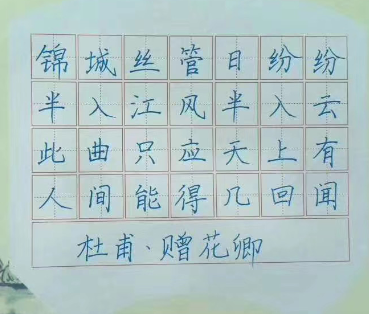 锦城丝管日纷纷
半入江风半入云
此曲只应天上有
人间能得几回闻
杜甫、赠花卿